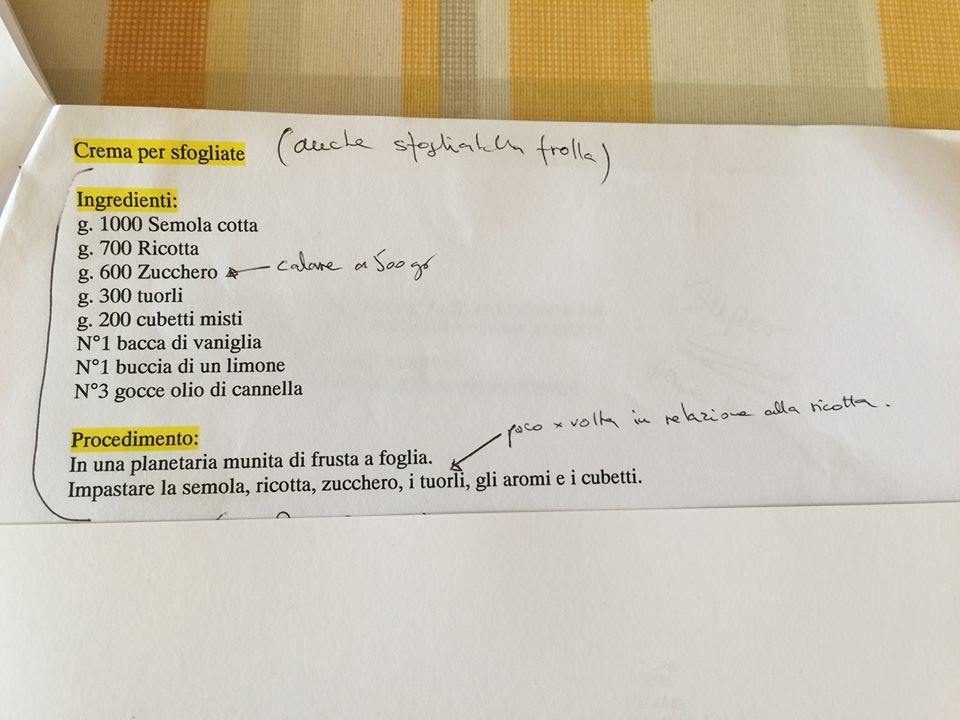 Crema per sfogliate (anche sfogliatella frolla)
Ingredienti:
g. 1000 Semola cotta
g. 700 Ricotta
g. 600 Zucchero calare a 500 gr
g. 300 tuorli
g. 200 cubetti misti
N°1 bacca di vaniglia
N°1 buccia di un limone
N°3 gocce olio di cannella
poco x volta in relazione alla ricotta.
Procedimento:
In una planetaria munita di frusta a foglia.
Impastare la semola, ricotta, zucchero, i tuorli, gli aromi e i cubetti.